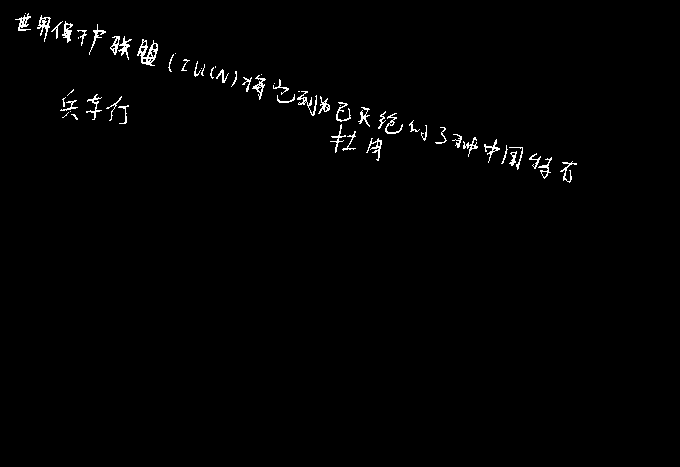 世界保护联盟(IUCN)将它列为已灭绝的3种中国特有
兵车行
杜甫